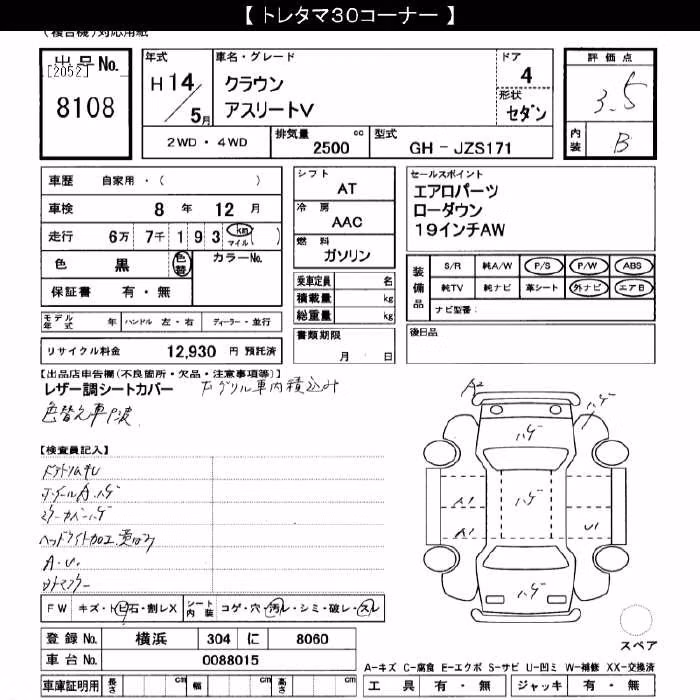 【 トレタマ30コーナー 】
(複合機)対応用紙
出品No.
[2052]
8108
年式
H 14
/
5月
車名・グレード
クラウン
アスリートV
ドア
4
形状
セダン
評価点
3.5
内装
B
2WD・4WD
排気量
2500 cc
型式
GH - JZS171
車歴 自家用・( )
車検 8 年 12 月
走行 6万 7千 1 9 3 km マイル ( )
色 黒 色替 カラーNo.
保証書 有・無
シフト
AT
冷房
AAC
燃料
ガソリン
乗車定員 名
積載量 kg
総重量 kg
セールスポイント
エアロパーツ
ローダウン
19インチAW
装備品
S/R 純A/W P/S P/W ABS
純TV 純ナビ 革シート 外ナビ エアB
ナビ型番:
モデル年式 年 ハンドル 左・右 ディーラー・並行
リサイクル料金 12,930 円 預託済
書類期限
月 日
後日品
【出品店申告欄(不良箇所・欠品・注意事項等)】
レザー調シートカバー
グリル車内積込み
色替え車
【検査員記入】
ヘッドライト加工
A・U
A2
ハゲ
ハゲ
A1
ハゲ
A1
U1
ハゲ
FW キズ・トビ石・割レX シート内装 コゲ・穴・汚レ・シミ・破レ・スレ
登録No. 横浜 304 に 8060
車台No. 0088015
車庫証明用 長さ cm 幅 cm 高さ cm
スペア
A-キズ C-腐食 E-エクボ S-サビ U-凹ミ W-補修 XX-交換済
工具 有・無 ジャッキ 有・無